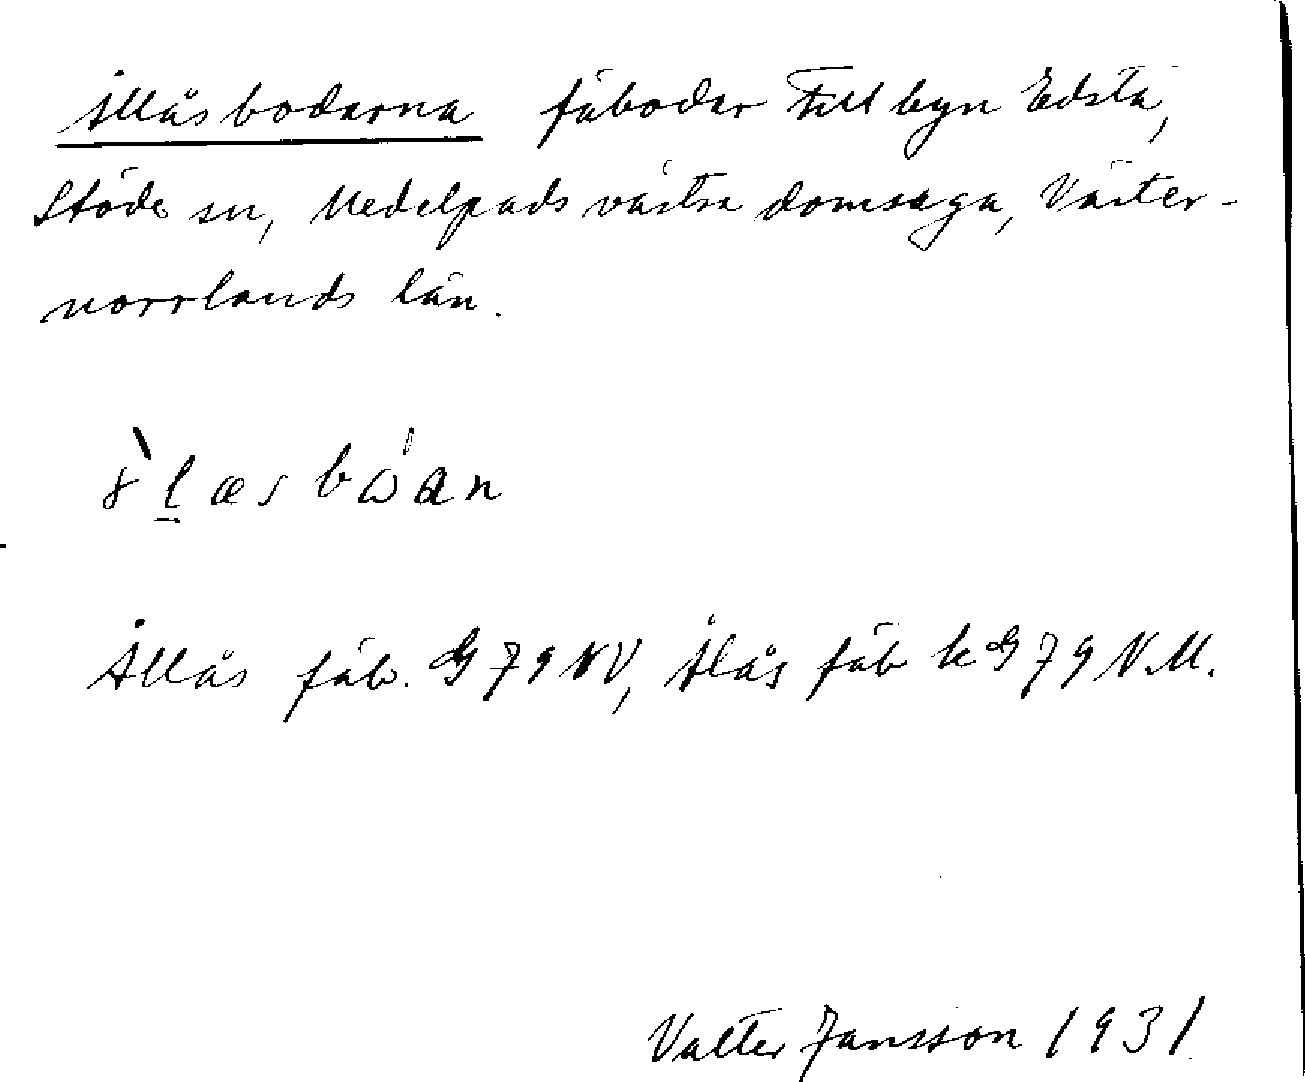 Ållåsbodarna fäbodar till byn Edsta,
Stöde sn, Medelpads västra domsaga, Väster-
norrlands län.
Ållås fäb. G 79 NV, Ålås fäb k G 79 N.M.
Valter Jansson 1931